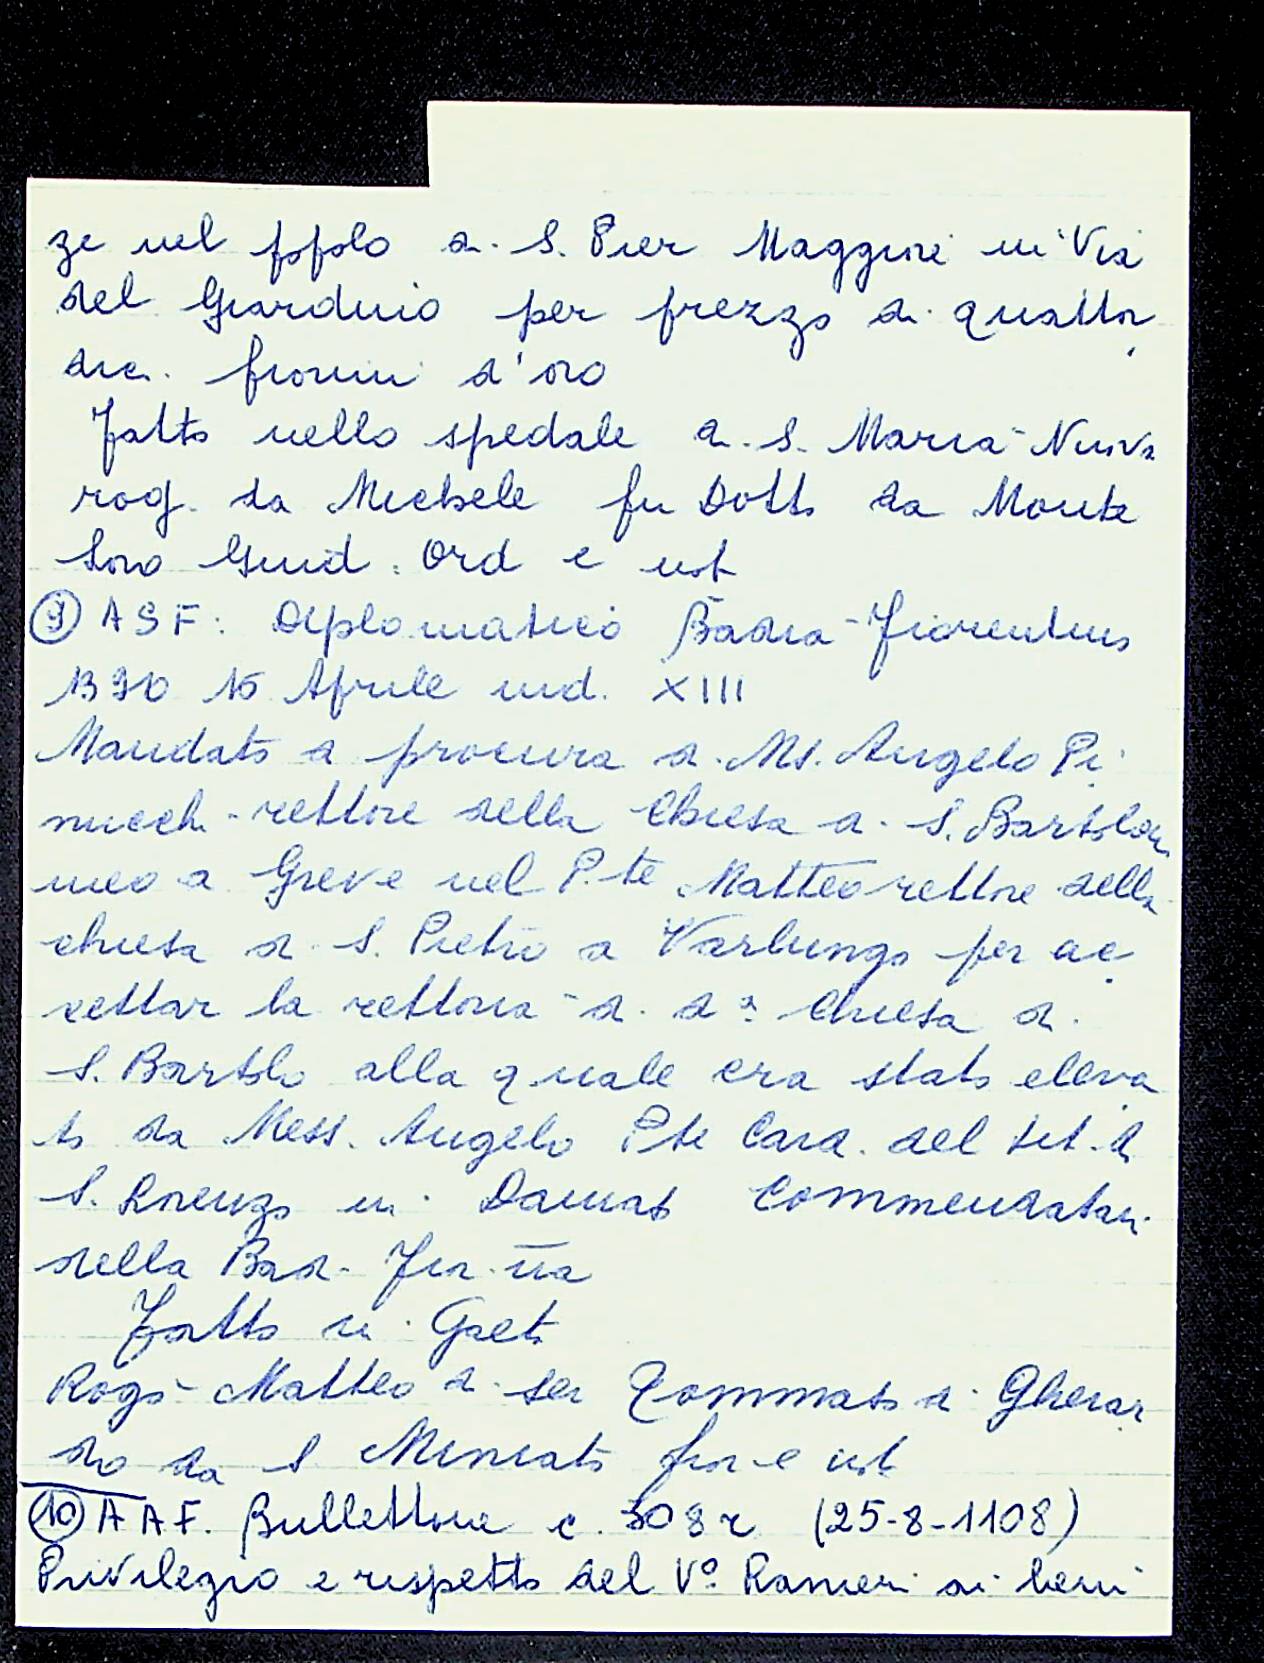 ze nel popolo di S. Pier Maggiore in Via
del Giardino per prezzo di quattor
dici fiorini d'oro
Fatto nello spedale di S. Maria Nuova
rog. da Michele fu Dotto da Monte
loro Giud. Ord e not
⑨ ASF: Diplomatico Badia Fiorentina
1390 15 Aprile ind. XIII
Mandato a procura di Ms. Angelo Pi
nucci rettore della Chiesa di S. Bartolom
meo a Greve nel P.te Matteo rettore della
chiesa di S. Pietro a Varlungo per ac
cettar la rettoria di dª Chiesa di
S. Bartolo alla quale era stato eleva
to da Mess. Angelo P.te Card. del tit. di
S. Lorenzo in Damaso Commendatari
della Bad. Fior.na
Fatto in Gaeta
Rogò Matteo di ser Tommaso di Gherar
do da S Miniato fior e not
⑩ AAF. Bullettone c. 308 r (25-8-1108)
Privilegio e rispetto del Vº Ranieri ai beni